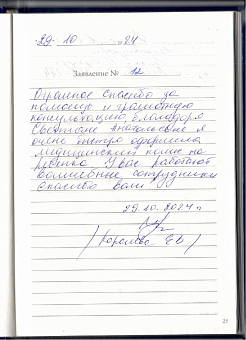 29. 10 24
Заявление № 12
Огромное спасибо за
помощь и грамотную
консультацию, благодаря
Светлане Анатольевне я
очень быстро оформила
медицинский полис на
ребенка. У вас работают
волшебные сотрудники
Спасибо Вам
29.10.2024 г
/ Королева ЕВ /
21